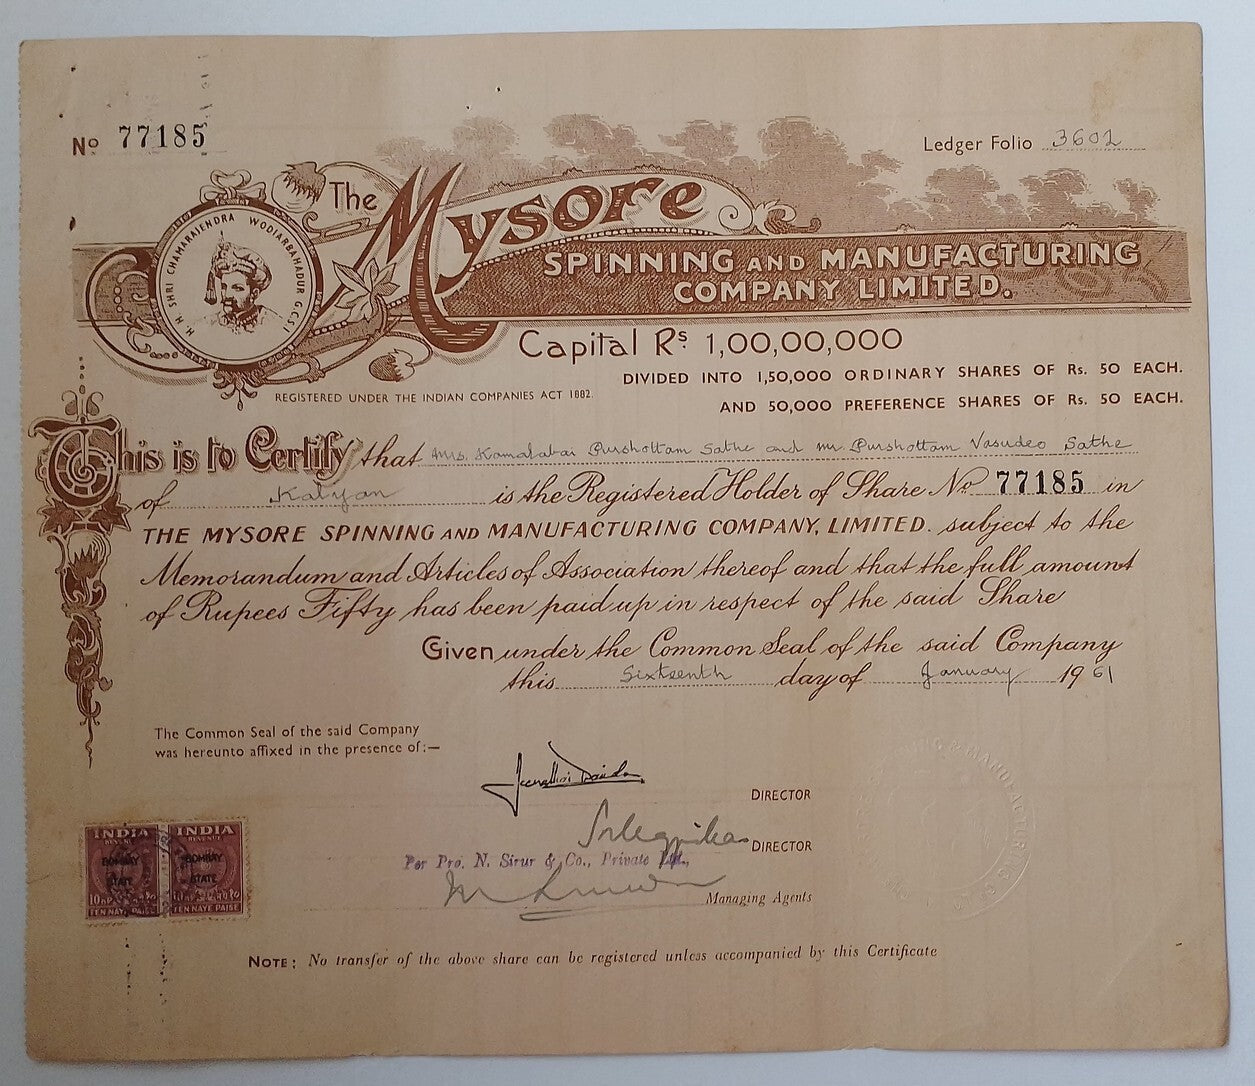 No 77185
Ledger Folio 3602
The Mysore
SPINNING AND MANUFACTURING
COMPANY LIMITED.
H. H. SHRI CHAMARAJENDRA WODIARBAHADUR G.C.S.I.
Capital Rs 1,00,00,000
DIVIDED INTO 1,50,000 ORDINARY SHARES OF Rs. 50 EACH.
AND 50,000 PREFERENCE SHARES OF Rs. 50 EACH.
REGISTERED UNDER THE INDIAN COMPANIES ACT 1882.
This is to Certify that Mrs. Kamalabai Purshottam Sathe and Mr Purshottam Vasudeo Sathe
of Kalyan is the Registered Holder of Share No 77185 in
THE MYSORE SPINNING AND MANUFACTURING COMPANY, LIMITED. subject to the
Memorandum and Articles of Association thereof and that the full amount
of Rupees Fifty has been paid up in respect of the said Share
Given under the Common Seal of the said Company
this Sixteenth day of January 1961
The Common Seal of the said Company
was hereunto affixed in the presence of:—
DIRECTOR
DIRECTOR
Per Pro. N. Sirur & Co., Private Ltd.,
Managing Agents
INDIA INDIA
REVENUE REVENUE
BOMBAY BOMBAY
STATE STATE
TEN NAYE PAISE TEN NAYE PAISE
NOTE: No transfer of the above share can be registered unless accompanied by this Certificate